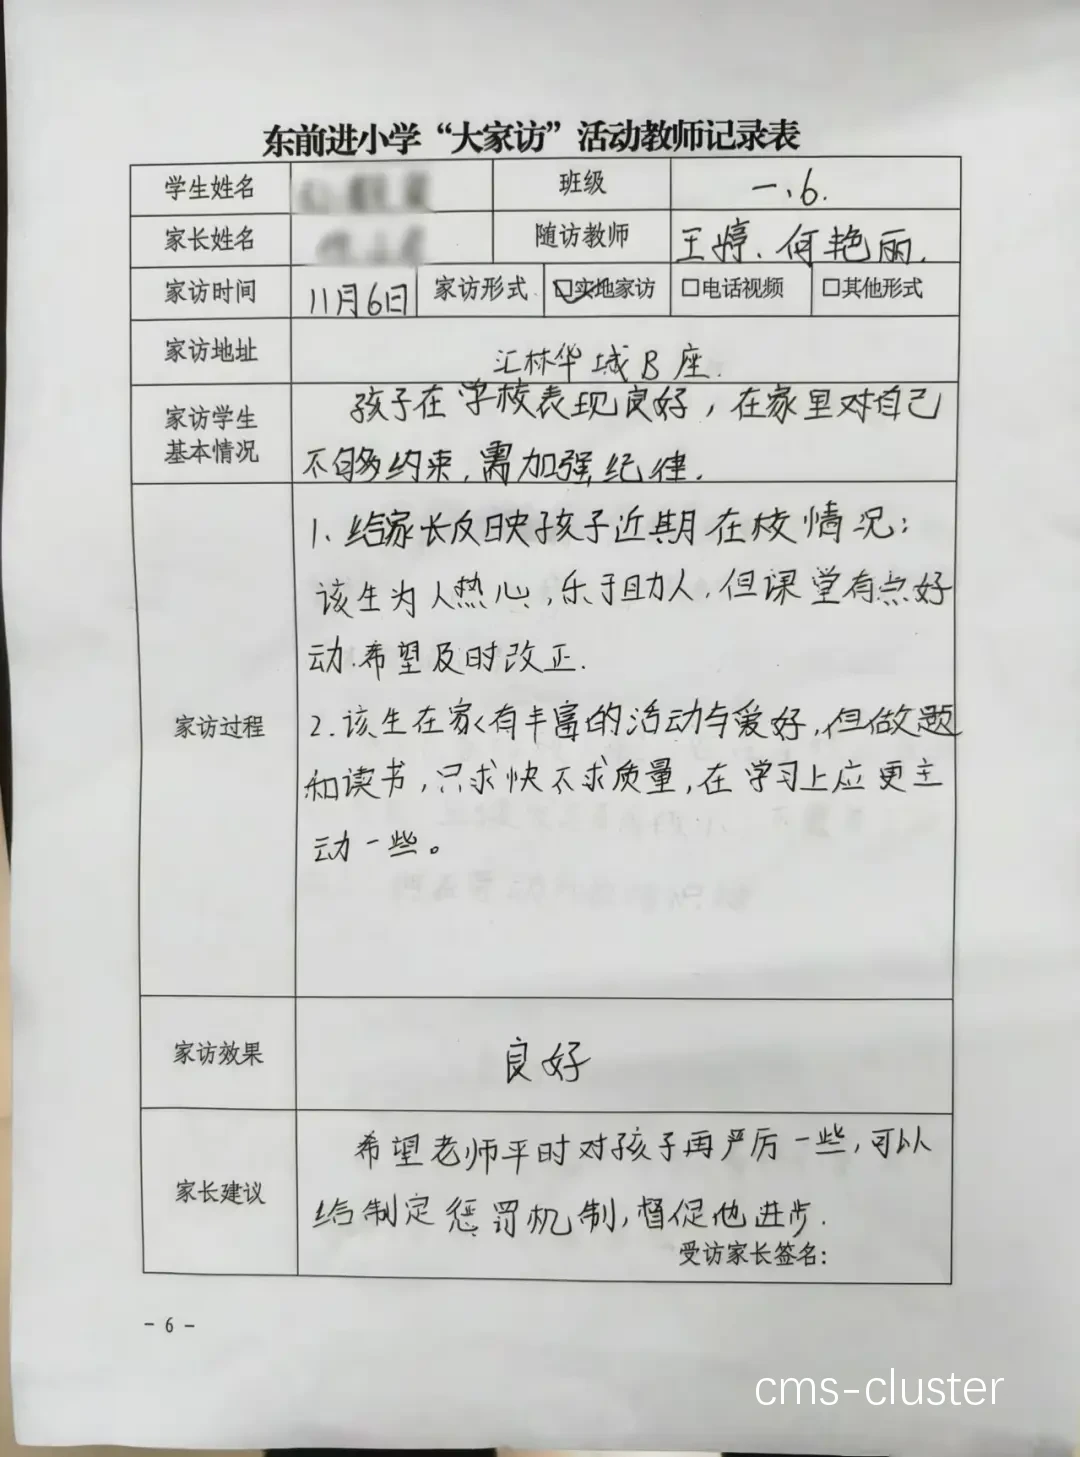 东前进小学“大家访”活动教师记录表
学生姓名 班级 一.6.
家长姓名 随访教师 王婷.何艳丽.
家访时间 11月6日 家访形式 ☑实地家访 □电话视频 □其他形式
家访地址 汇林华城B座.
家访学生
基本情况
孩子在学校表现良好,在家里对自己
不够约束,需加强纪律.
家访过程
1、给家长反映孩子近期在校情况:
该生为人热心,乐于助人,但课堂有点好
动.希望及时改正.
2.该生在家有丰富的活动与爱好,但做题
和读书,只求快不求质量,在学习上应更主
动一些。
家访效果 良好
家长建议
希望老师平时对孩子再严厉一些,可以
给制定惩罚机制,督促他进步.
受访家长签名:
- 6 -
cms-cluster